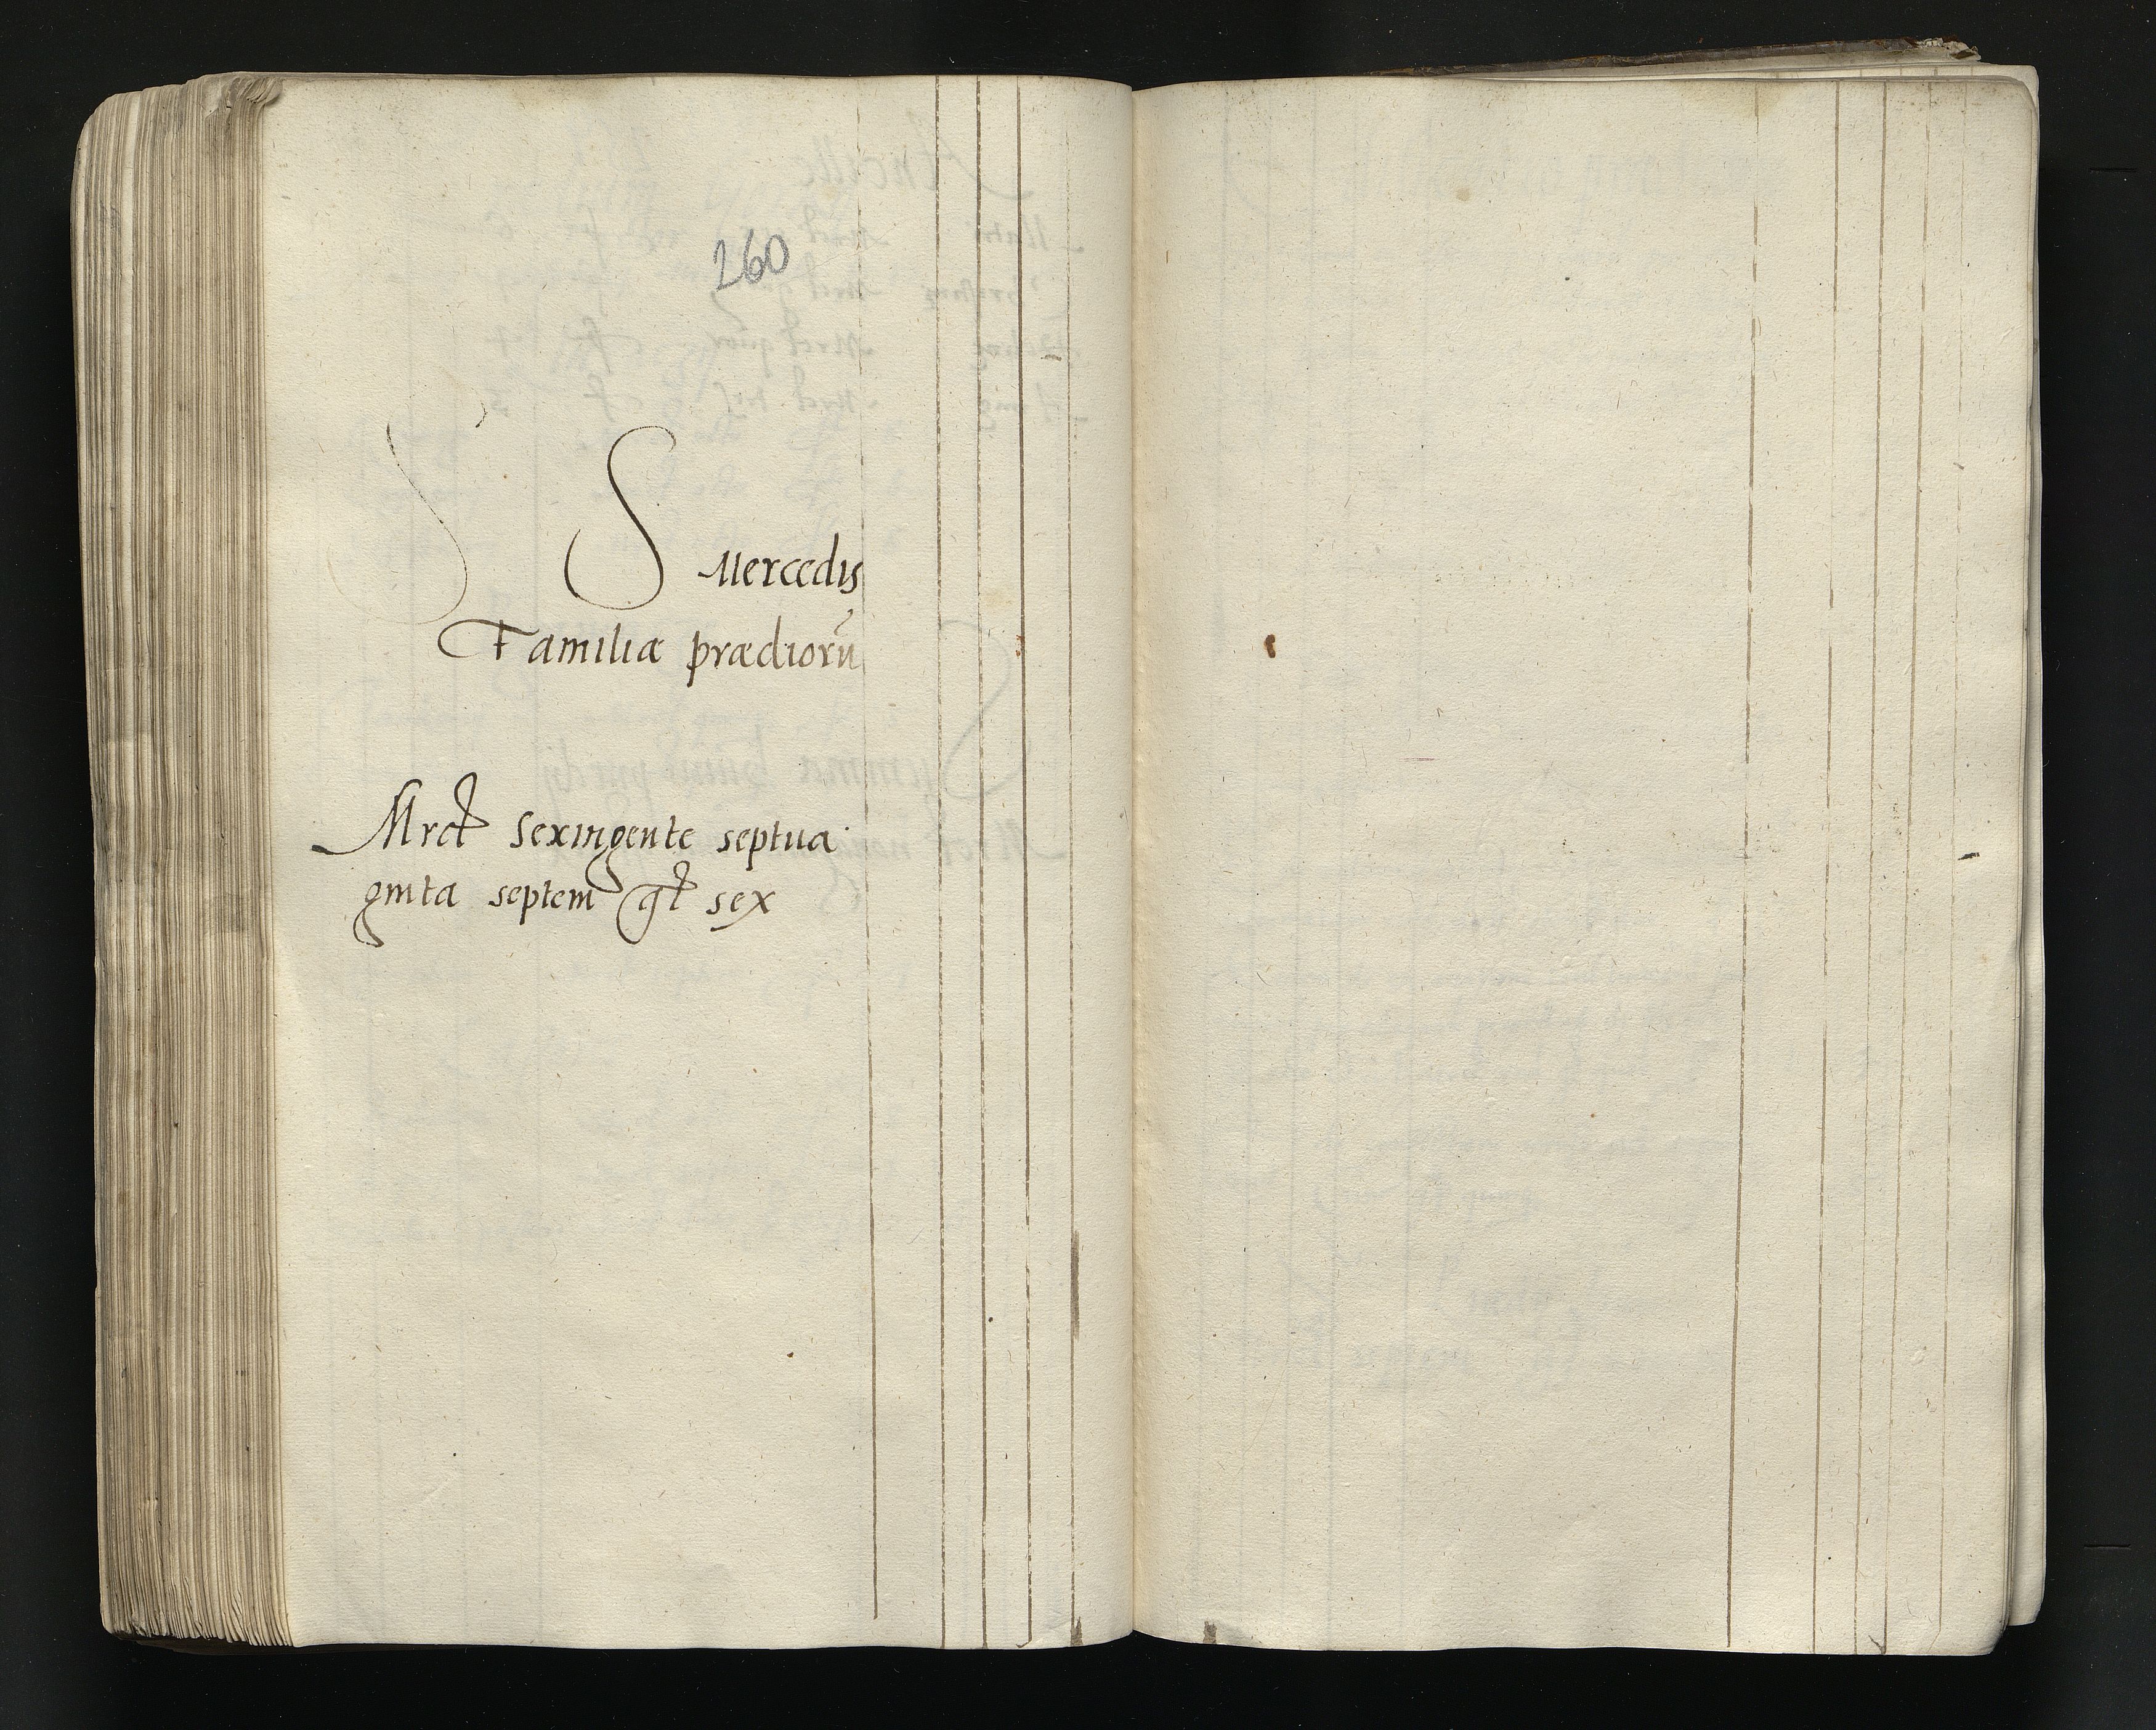 260
S Mercedis
Familiæ prædiorũ
Mrct sexingente septua
ginta septem gt sex